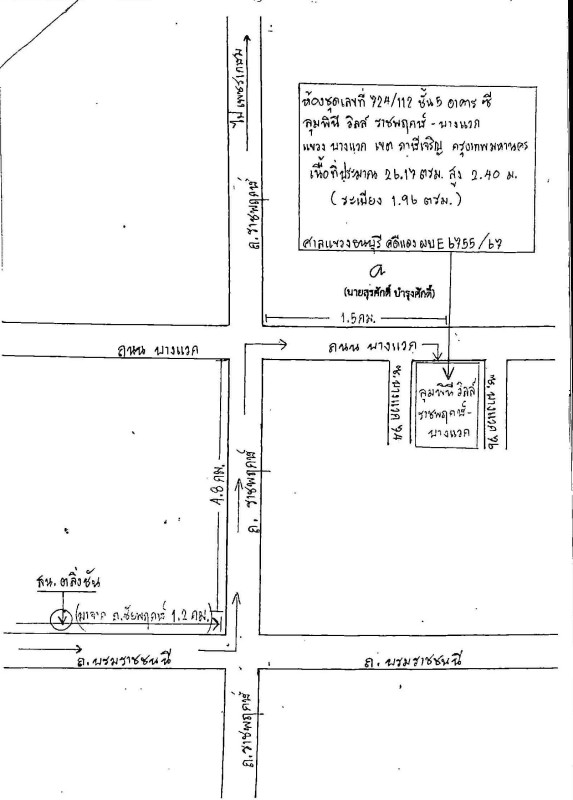 ไปเพชรเกษม
ถ.ราชพฤกษ์
ห้องชุดเลขที่ 724/112 ชั้น 5 อาคาร ซี
ลุมพินี วิลล์ ราชพฤกษ์ - บางแวก
แขวง บางแวก เขต ภาษีเจริญ กรุงเทพมหานคร
เนื้อที่ประมาณ 26.17 ตรม. สูง 2.40 ม.
(ระเบียง 1.96 ตรม.)
ศาลแขวงธนบุรี คดีแดง ผบE 6755/67
(นายสุรศักดิ์ บำรุงศักดิ์)
1.5 กม.
ถนน บางแวก
ถนน บางแวก
ซ.บางแวก 94
ลุมพินี วิลล์
ราชพฤกษ์-
บางแวก
ซ.บางแวก 96
4.8 กม.
ถ. ราชพฤกษ์
สน. ตลิ่งชัน
(มาจาก ถ.ชัยพฤกษ์ 1.2 กม.)
ถ. บรมราชชนนี
ถ. บรมราชชนนี
ถ.ราชพฤกษ์